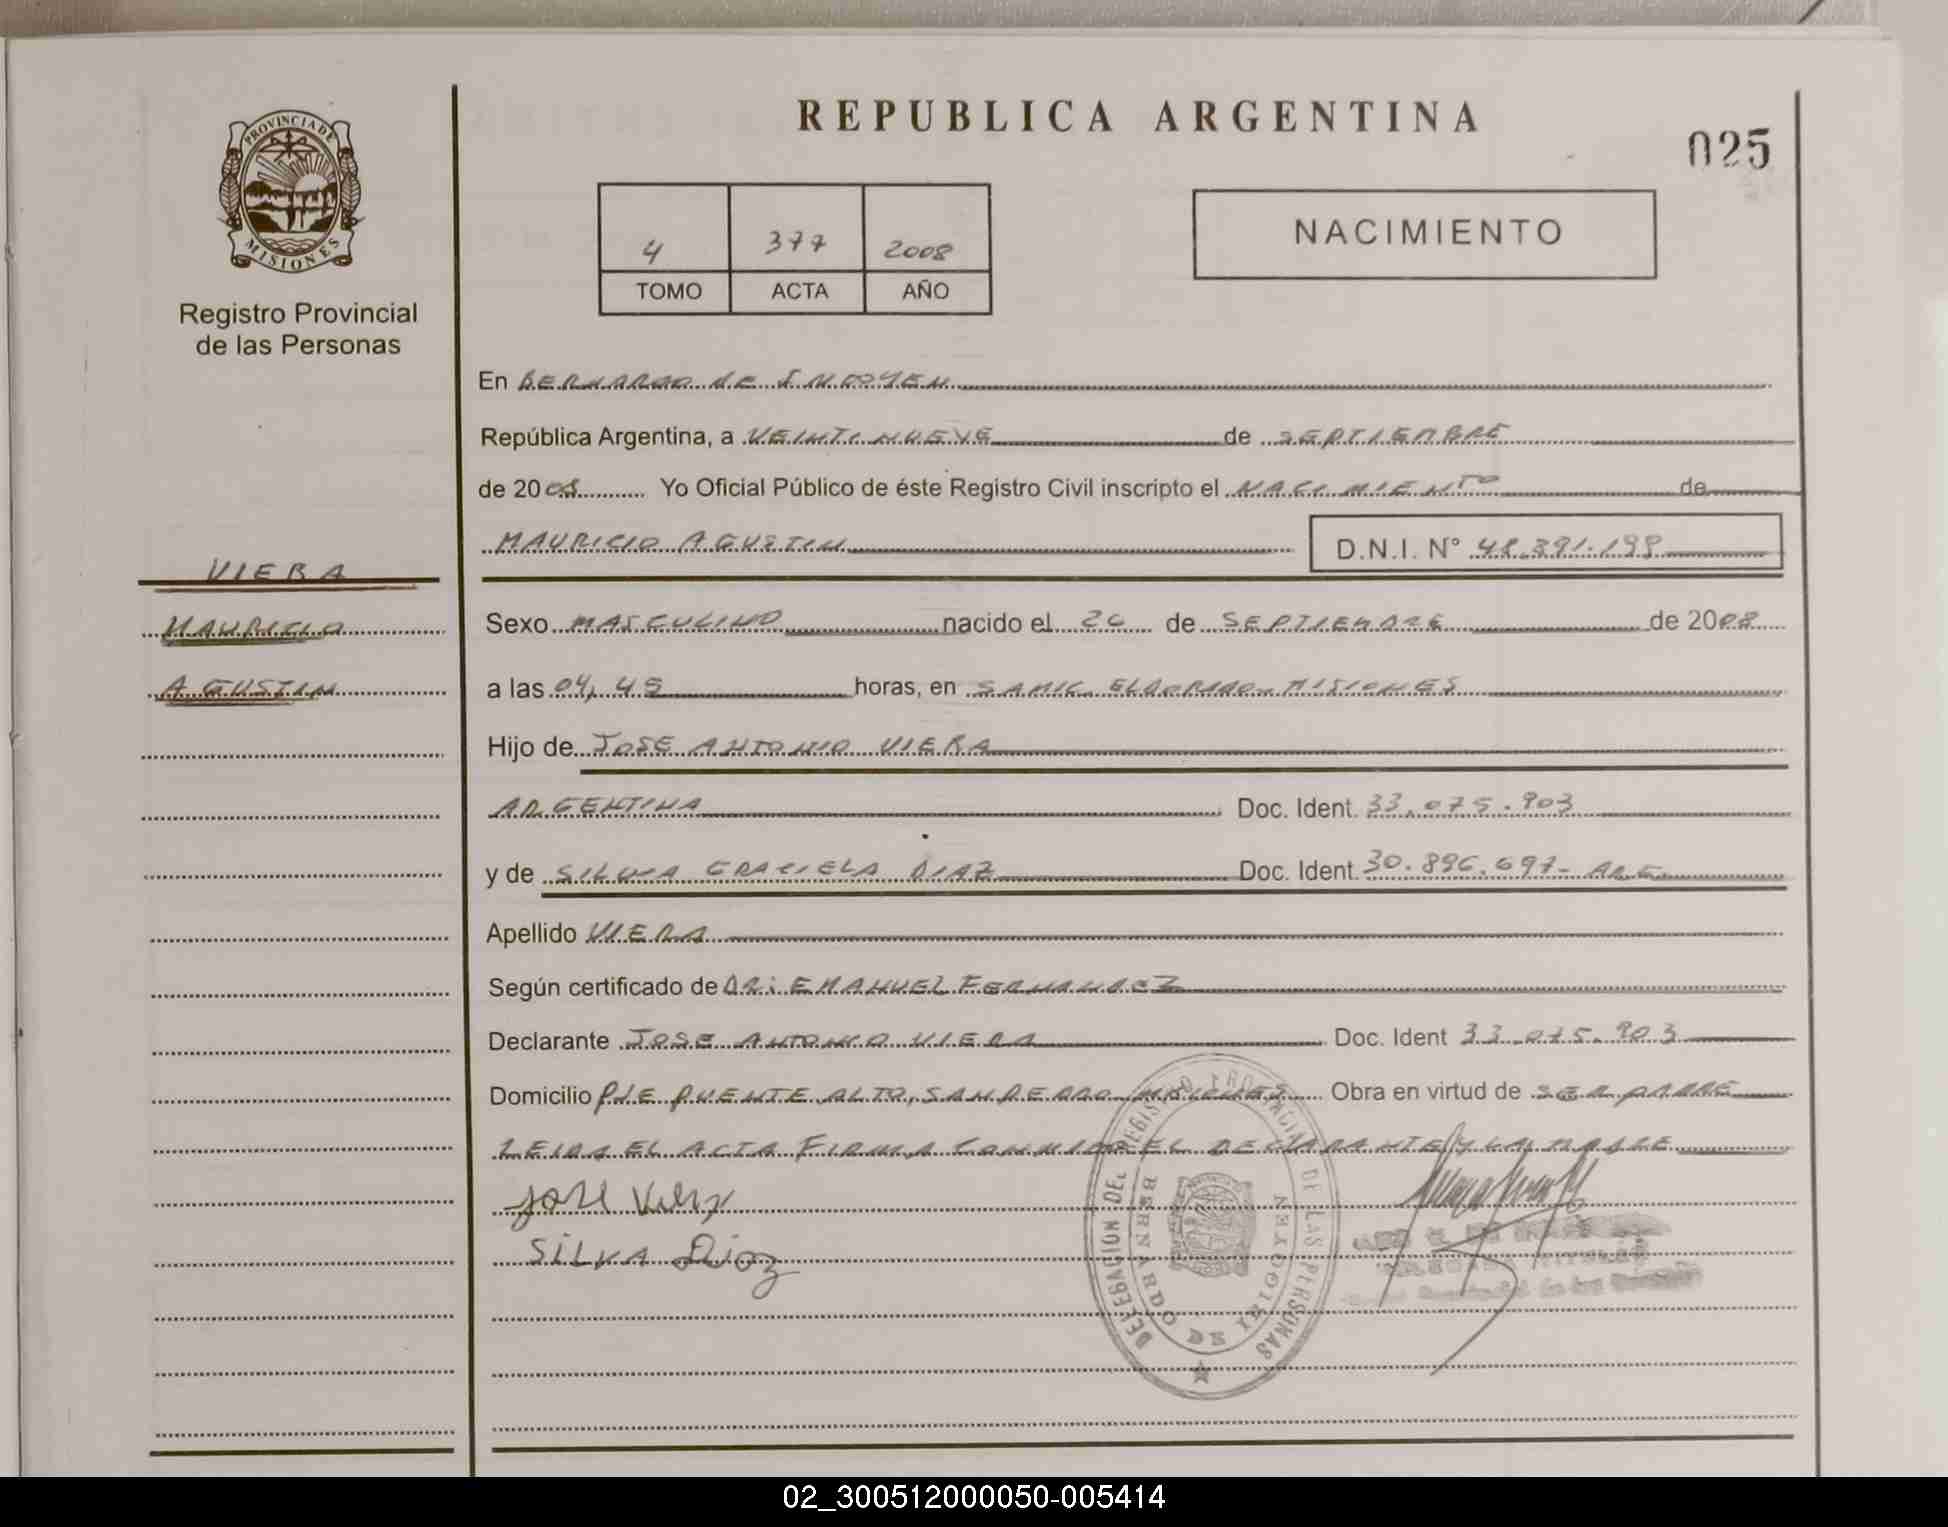 REPUBLICA ARGENTINA
025
PROVINCIA DE
MISIONES
Registro Provincial
de las Personas
4 377 2008
TOMO ACTA AÑO
NACIMIENTO
En BERNARDO DE IRIGOYEN
República Argentina, a VEINTINUEVE de SEPTIEMBRE
de 2008 Yo Oficial Público de éste Registro Civil inscripto el NACIMIENTO de
MAURICIO AGUSTIN D.N.I. N° 48.391.199
VIERA
MAURICIO
AGUSTIN
Sexo MASCULINO nacido el de SEPTIEMBRE de 2008
a las 04,45 horas, en SAMIC ELDORADO MISIONES
Hijo de JOSE ANTONIO VIERA
ARGENTINA Doc. Ident. 33.075.903
y de SILVIA GRACIELA DIAZ Doc. Ident. 30.896.697- ARG
Apellido VIERA
Según certificado de DR: EMANUEL FERNANDEZ
Declarante JOSE ANTONIO VIERA Doc. Ident 33.075.903
Domicilio PJE PUENTE ALTO, SAN PEDRO MISIONES Obra en virtud de SER PADRE
LEIDA EL ACTA FIRMA CONMIGO EL DECLARANTE Y LA MADRE
JOSE Viera
SILVA Diaz
DELEGACION DEL REGISTRO PROVINCIAL DE LAS PERSONAS
BERNARDO DE IRIGOYEN
02_300512000050-005414